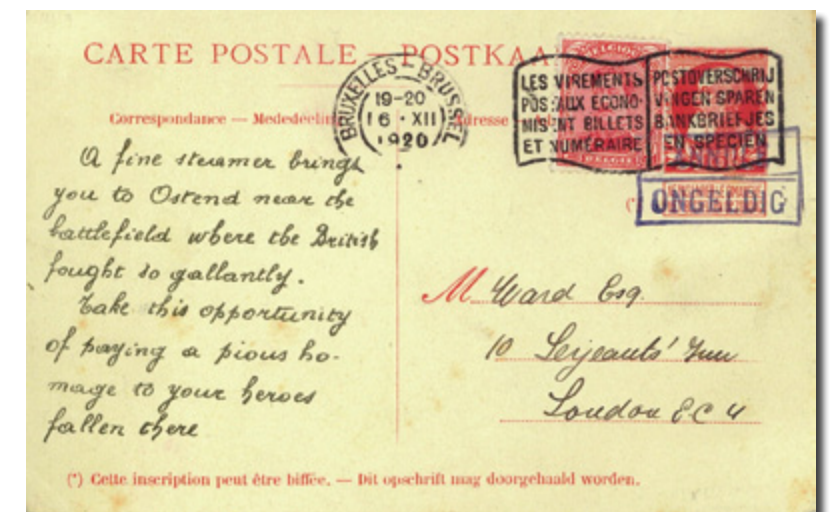 CARTE POSTALE — POSTKAA
BRUXELLES - BRUSSEL
19-20
16 · XII
1920
LES VIREMENTS
POSTAUX ÉCONO-
MISENT BILLETS
ET NUMÉRAIRE
POSTOVERSCHRIJ
VINGEN SPAREN
BANKBRIEFJES
EN SPECIEN
BELGIQUE
BELGIE
ONGELDIG
Correspondance — Mededeelin
dresse
A fine steamer brings
you to Ostend near the
battlefield where the British
fought so gallantly.
Take this opportunity
of paying a pious ho-
mage to your heroes
fallen there
M Ward Esq.
10 Serjeants' Inn
London EC 4
(*) Cette inscription peut être biffée. — Dit opschrift mag doorgehaald worden.